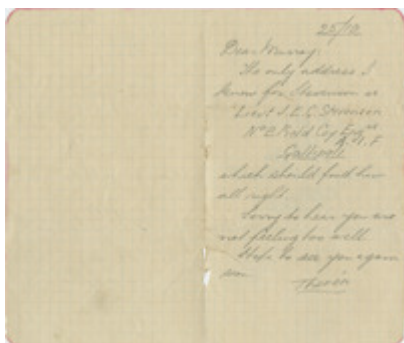 25/10
Dear Murray:
The only address I
know for Stevenson is
"Lieut J. E. G. Stevenson
No 2 Field Coy Engrs
A. I. F
Gallipoli
which should find him
all right.
Sorry to hear you are
not feeling too well
Hope to see you again
soon